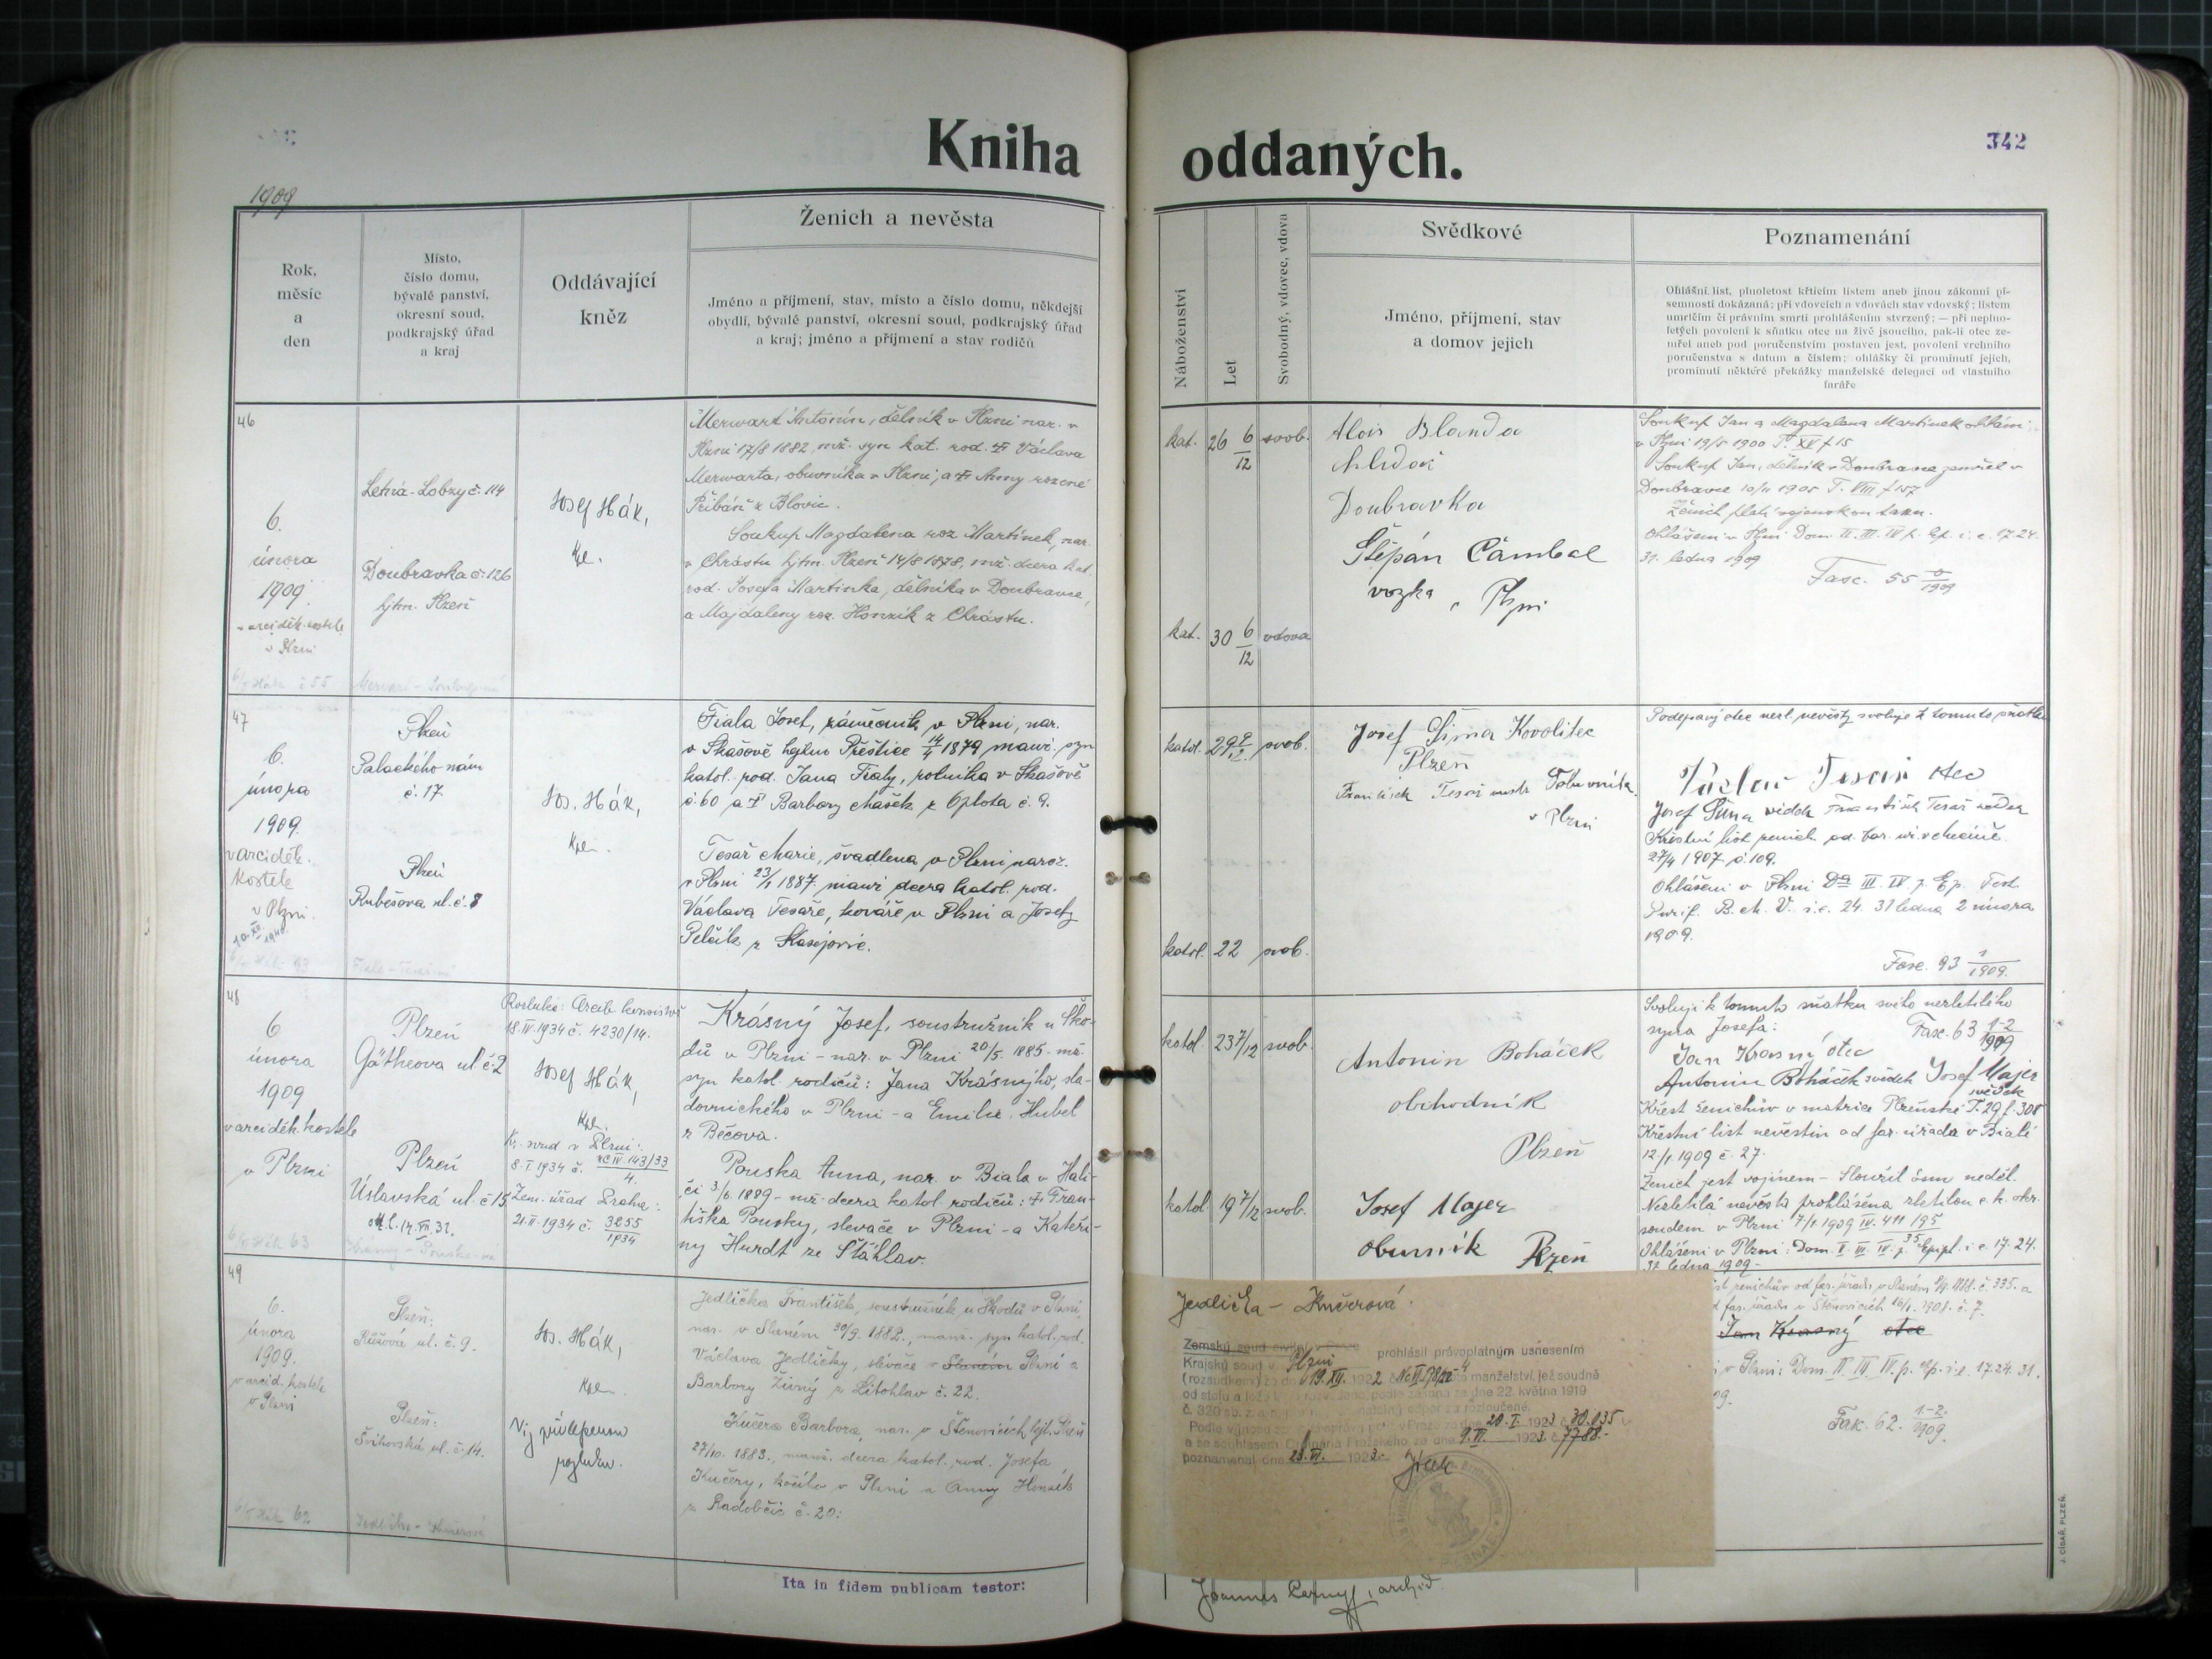 Kniha oddaných.
342
1909
Rok,
měsíc
a
den
Místo,
číslo domu,
bývalé panství,
okresní soud,
podkrajský úřad
a kraj
Oddávající
kněz
Ženich a nevěsta
Jméno a příjmení, stav, místo a číslo domu, někdejší
obydlí, bývalé panství, okresní soud, podkrajský úřad
a kraj; jméno a příjmení a stav rodičů
Náboženství
Let
Svobodný, vdovec, vdova
Svědkové
Jméno, příjmení, stav
a domov jejich
Poznamenání
Ohlášní list, plnoletost křticím listem aneb jinou zákonní pí-
semností dokázaná; při vdovcích a vdovách stav vdovský; listem
umrlčím či právním smrti prohlášením stvrzený; — při neplno-
letých povolení k sňatku otce na živě jsoucího, pak-li otec ze-
mřel aneb pod poručenstvím postaven jest, povolení vrchního
poručenstva s datum a číslem; ohlášky či prominutí jejich,
prominutí některé překážky manželské delegací od vlastního
faráře
46
6.
února
1909.
v arciděk. kostele
v Plzni
Letná-Lobzy č. 114
Doubravka č. 126
hjtm. Plzeň
Josef Hák,
kpl.
Merwart Antonín, dělník v Plzni nar. v
Plzni 17/8 1882 mž. syn kat. rod. † Václava
Merwarta, obuvníka v Plzni; a † Anny rozené
Přibáň z Blovic.
Soukup Magdalena roz. Martínek, nar.
v Chrástu hjtm. Plzeň 14/8 1878, mž. dcera kat.
rod. Josefa Martínka, dělníka v Doubravce,
a Majdaleny roz. Honzík z Chrástu.
kat. 26 6/12 svob.
kat. 30 6/12 vdova
Alois Blanda
Doubravka
Štěpán Čambal
vozka v Plzni
Soukup Jan a Magdalena Martínek ohlášeni
v Plzni 19/5 1900 T. XV f 15
Soukup Jan, dělník v Doubravce zemřel v
Doubravce 10/11 1905 T. VIII f 157
Ženich platí vojenskou taxu.
Ohlášeni v Plzni Dom. II. III. IV p. Ep. i. e. 17. 24.
31. ledna 1909
Fasc. 55
47
6.
února
1909.
v arciděk.
kostele
v Plzni.
Plzeň
Palackého nám
č. 17.
Plzeň
Rubešova ul. č. 8
Jos. Hák,
kpl.
Fiala Josef, zámečník v Plzni, nar.
v Skašově hejtm Přeštice 14/4 1879 manž. syn
katol. rod. Jana Fialy, rolníka v Skašově
č. 60 a † Barbory Mašek z Oplota č. 9.
Tesař Marie, švadlena v Plzni naroz.
v Plzni 23/1 1887. manž dcera katol. rod.
Václava Tesaře, kováře v Plzni a Josefy
Pelčík z Kasejovic.
katol. 29 9/12 svob.
katol. 22 svob.
Josef Šíma Kovolitec
Plzeň
František Tesař
v Plzni
Podepsaný otec nezl. nevěsty svoluje k tomuto sňatku
Václav Tesař otec
Josef Šíma svědek František Tesař svědek
27/4 1907 č. 109.
Ohlášeni v Plzni Dca III. IV p. Ep. Fest.
Purif. B. M. V. i. e. 24. 31 ledna 2 února
1909.
Fasc. 93 1/1909.
48
6
února
1909
v arciděk. kostele
v Plzni
Plzeň
Götheova ul č. 2
Plzeň
Úslavská ul. č 15
Rozluka: Arcib. konsistoř
18. IV. 1934 č. 4230/14.
Josef Hák,
kpl.
Kr. soud v Plzni:
8. I. 1934 č. Rc IV 143/33
4.
Zem. úřad Praha:
21. II. 1934 č. 3255/1934
Krásný Josef, soustružník u Ško-
dů v Plzni – nar. v Plzni 20/5. 1885 – mž.
syn katol. rodičů: Jana Krásného, sla-
dovnického v Plzni – a Emilie Hubel
z Bečova.
Pouska Anna, nar. v Biala v Hali-
či 3/6. 1889 – mž. dcera katol rodičů: † Fran-
tiška Pousky, slevače v Plzni – a Kateři-
ny Hurdt ze Štáhlav.
katol. 23 7/12 svob.
katol. 19 7/12 svob.
Antonín Boháček
obchodník
Plzeň
Josef Majer
obuvník Plzeň
Svoluji k tomuto sňatku svého nezletilého
syna Josefa:
Fasc. 63 1-2/1909
Jan Krásný otec
Antonín Boháček svědek Josef Majer
svědek
Křest ženichův v matrice Plzeňské T. 29 f. 308
Křestní list nevěstin od far. úřadu v Bialé
12/1 1909 č. 27.
Ženich jest vojínem – Sloužil osm neděl.
Nezletilá nevěsta prohlášena zletilou c. k. okr.
soudem v Plzni 7/1 1909 IV. 411 195/35
Ohlášeni v Plzni: Dom. II. III. IV. p. Epiph. i e. 17. 24.
31. ledna 1909 –
49
6.
února
1909.
v arcid. kostele
v Plzni
Plzeň:
Růžová ul. č. 9.
Plzeň:
Švihovská ul. č. 14.
Jos. Hák,
kpl.
Viz přilepenou
rozluku.
Jedlička František, soustružník u Škodů v Plzni
nar. v Slaném 30/9. 1882., manž. syn katol. rod.
Václava Jedličky, slévače v Slaném Plzni a
Barbory Živný z Litohlav č. 22.
Kučera Barbora, nar. v Štěnovicích hjt. Plzeň
27/10. 1883., manž. dcera katol. rod. Josefa
Kučery, kočího v Plzni a Anny Honzík
z Radobčic č. 20:
Jedlička – Kučerová.
Zemský soud civilní v Praze prohlásil právoplatným usnesením
Krajský soud v Plzni
(rozsudkem) ze dne 19. XII. 1922 manželství, jež soudně
od stolu a lože rozvedeno, podle zákona ze dne 22. května 1919
č. 320 sb. z. a n. rozloučené.
Podle výnosu v Praze ze dne 20. I. 1923 č. 30.035
a se souhlasem Ordinária Pražského ze dne 9. VI. 1923 č. 7788.-
poznamenal dne 28. VI. 1923.-
Jan Krásný otec
v Plzni: Dom. II. III. IV. p. Ep. i. e. 17. 24. 31.
Fasc. 62. 1.-2./1909.
Ita in fidem publicam testor:
Joannes Černý, archid.
J. CÍSAŘ, PLZEŇ.